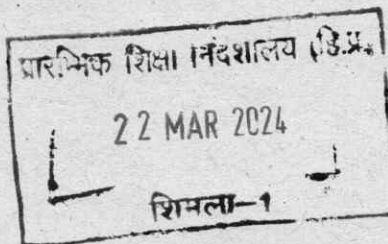 प्रारम्भिक शिक्षा निदेशालय (हि.प्र.
22 MAR 2024
शिमला-1